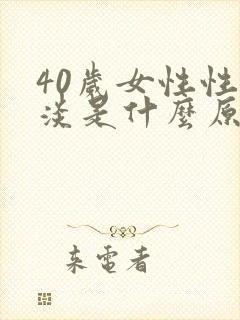 40歲女性性
淡是什麼原
來電者